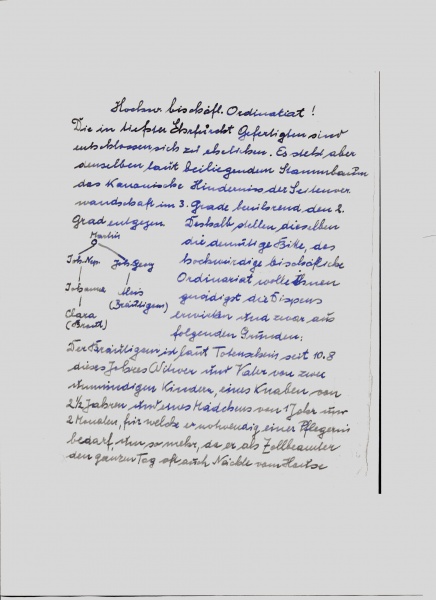 Hochw. bischöfl. Ordinariat!
Die in tiefster Ehrfurcht Gefertigten sind
entschlossen, sich zu ehelichen. Es steht aber
denselben laut beiliegendem Stammbaum
das Kanonische Hinderniss der Seitenver
wandschaft im 3. Grade berührend den 2.
Grad entgegen. Deshalb stellen dieselben
die demütige Bitte, das
hochwürdige bischöfliche
Ordinariat wolle Ihnen
gnädigst die Dispens
erwirken und zwar aus
folgenden Gründen:
Martin
Joh. Nep. Joh. Georg
Johanna Alois
(Bräutigam)
Clara
(Braut)
Der Bräutigam ist laut Totenschein seit 10.8
dieses Jahres Witwer und Vater von zwei
unmündigen Kindern, eines Knaben von
2½ Jahren und eines Mädchens von 1 Jahr und
2 Monaten, für welche er notwendig einer Pflegerin
bedarf, um so mehr, da er als Zollbeamter
den ganzen Tag oft auch Nächte vom Hause